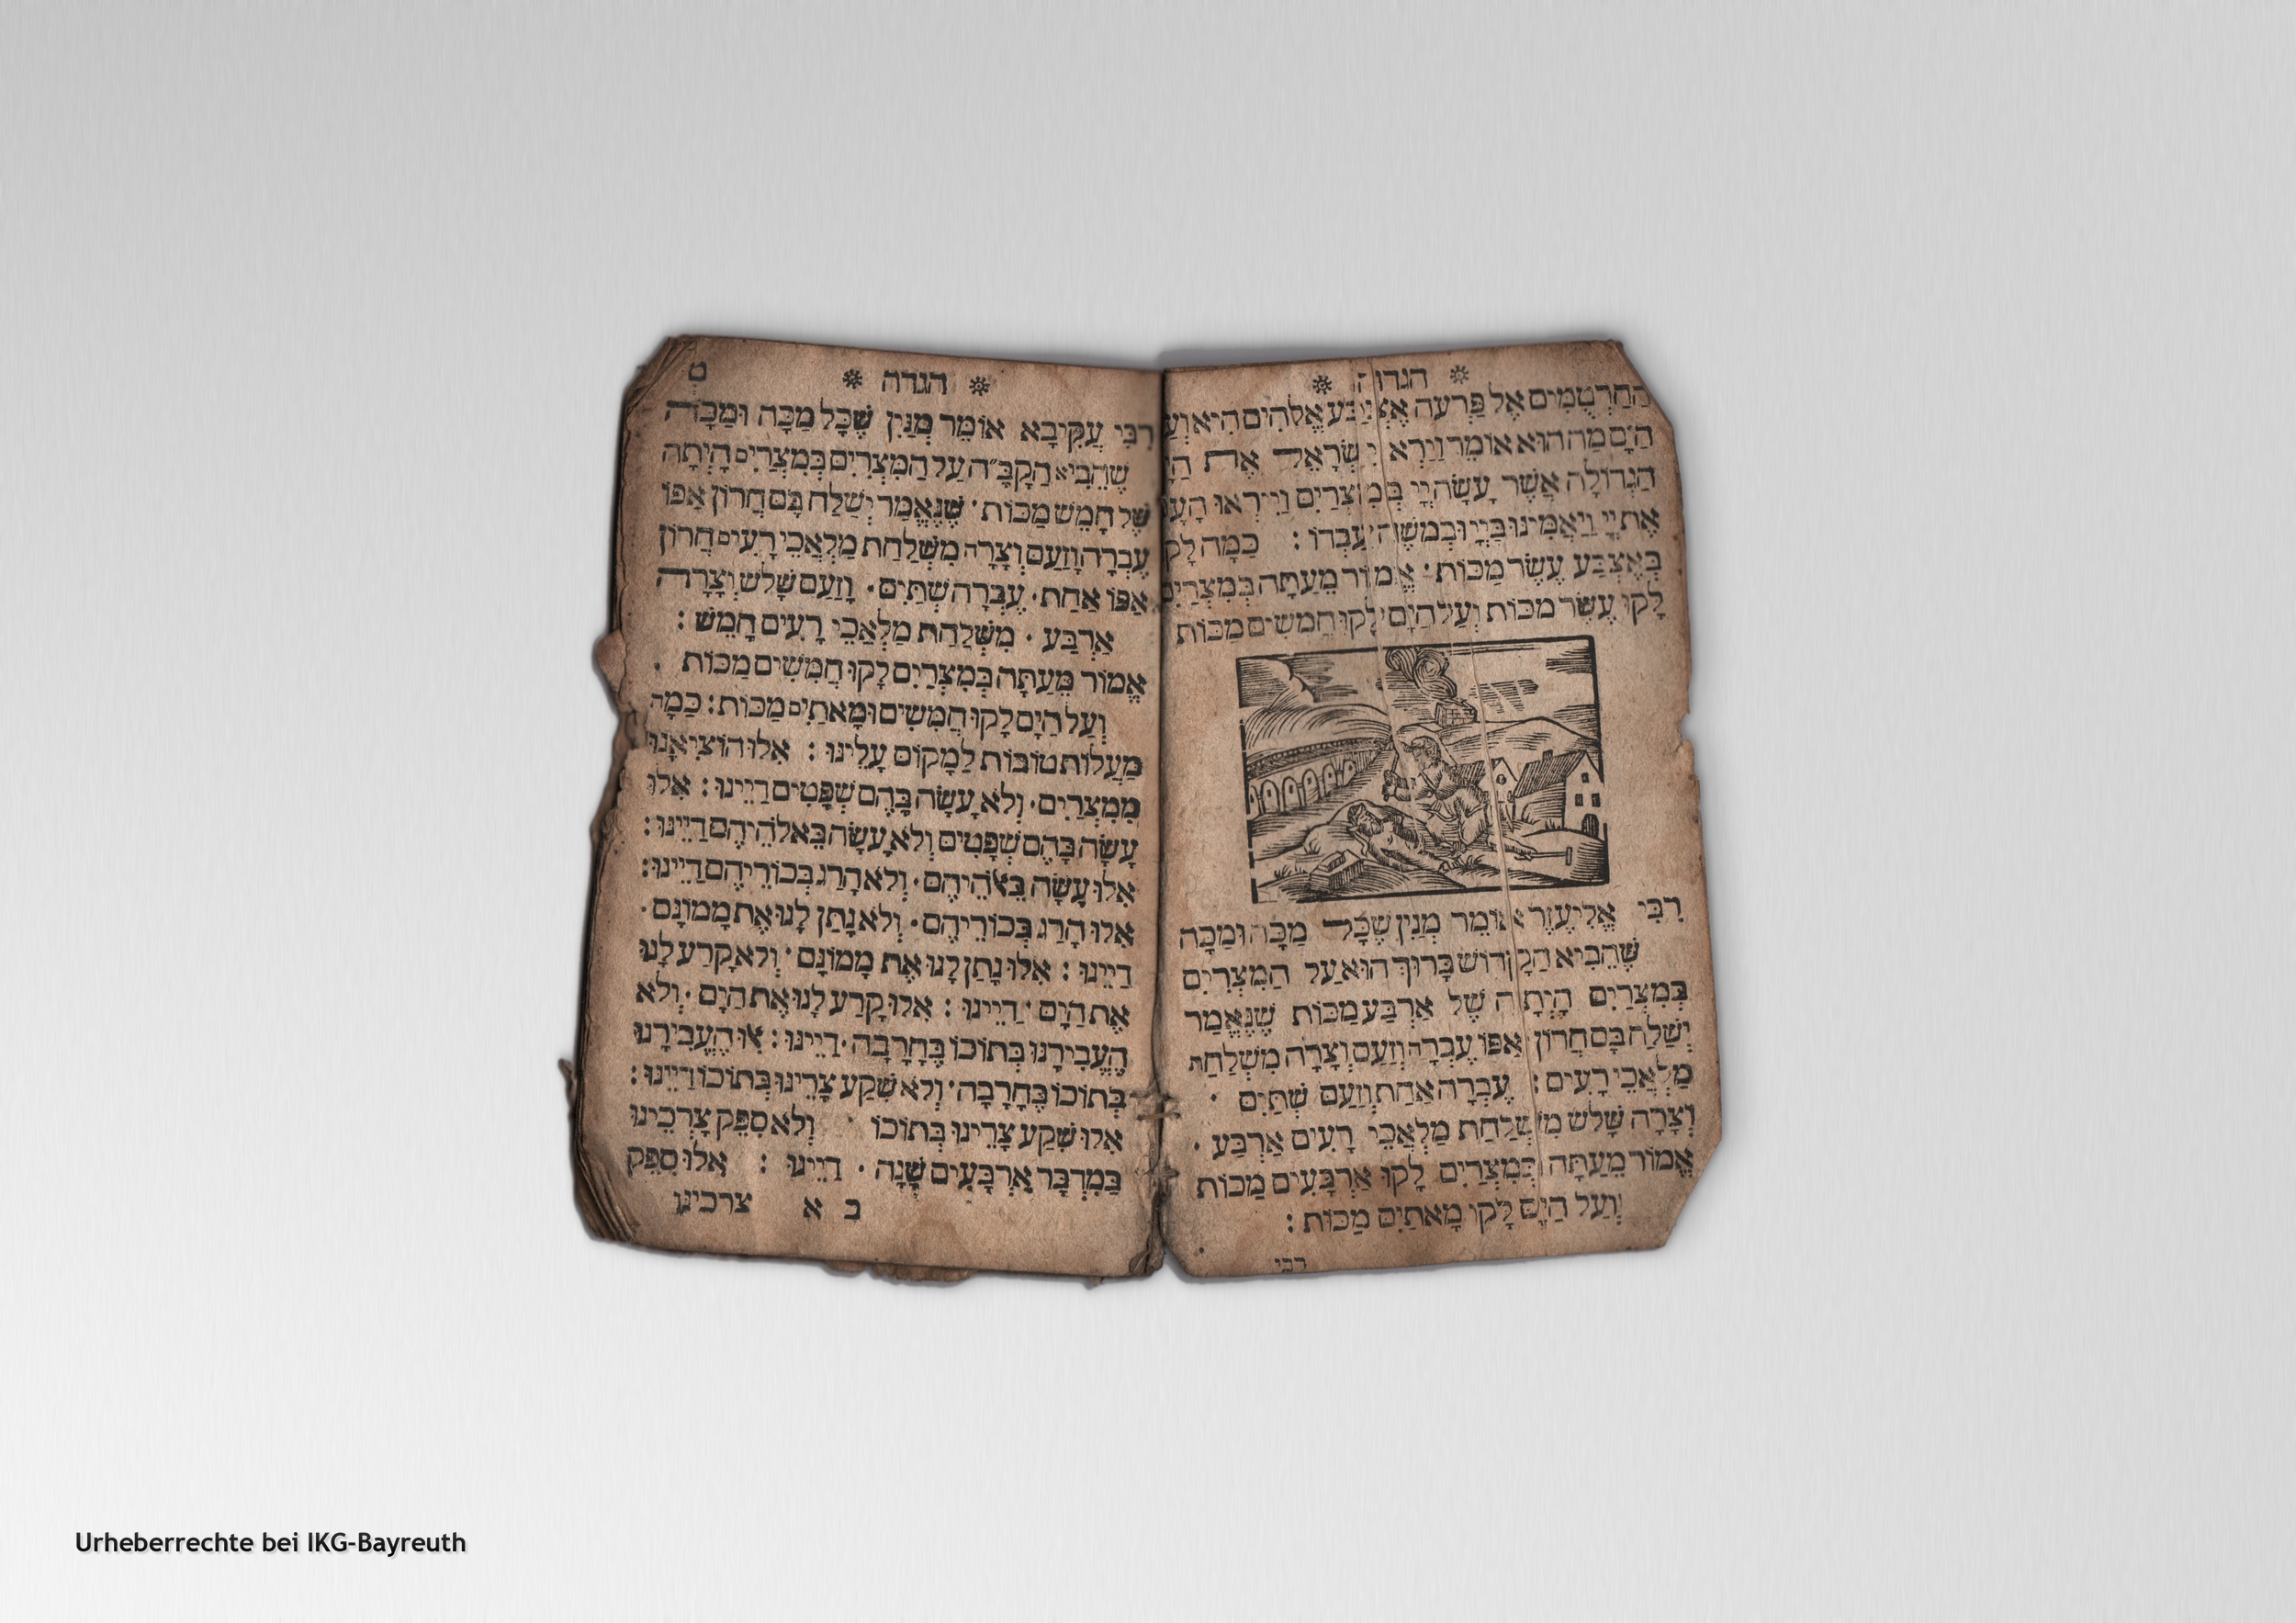 הגדה
החרטמים אל פרעה אצבע אלהים היא ועל
הים מה הוא אומר וירא ישראל את היד
הגדולה אשר עשה יי במצרים וייראו העם
את יי ויאמינו ביי ובמשה עבדו : כמה לקו
באצבע עשר מכות אמור מעתה במצרים
לקו עשר מכות ועל הים לקו חמשים מכות
רבי אליעזר אומר מנין שכל מכה ומכה
שהביא הקדוש ברוך הוא על המצרים
במצרים היתה של ארבע מכות שנאמר
ישלח בם חרון אפו עברה וזעם וצרה משלחת
מלאכי רעים : עברה אחת וזעם שתים ·
וצרה שלש משלחת מלאכי רעים ארבע ·
אמור מעתה במצרים לקו ארבעים מכות
ועל הים לקו מאתים מכות :
רבי
הגדה
ט
רבי עקיבא אומר מנין שכל מכה ומכה
שהביא הקב״ה על המצרים במצרים היתה
של חמש מכות · שנאמר ישלח בם חרון אפו
עברה וזעם וצרה משלחת מלאכי רעים חרון
אפו אחת · עברה שתים · וזעם שלש וצרה
ארבע · משלחת מלאכי רעים חמש :
אמור מעתה במצרים לקו חמשים מכות ·
ועל הים לקו חמשים ומאתים מכות : כמה
מעלות טובות למקום עלינו : אלו הוציאנו
ממצרים · ולא עשה בהם שפטים דיינו : אלו
עשה בהם שפטים ולא עשה באלהיהם דיינו :
אלו עשה באלהיהם · ולא הרג בכוריהם דיינו :
אלו הרג בכוריהם · ולא נתן לנו את ממונם ·
דיינו : אלו נתן לנו את ממונם · ולא קרע לנו
את הים · דיינו : אלו קרע לנו את הים · ולא
העבירנו בתוכו בחרבה · דיינו : אלו העבירנו
בתוכו בחרבה · ולא שקע צרינו בתוכו דיינו :
אלו שקע צרינו בתוכו · ולא ספק צרכינו
במדבר ארבעים שנה · דיינו : אלו ספק
ב א צרכינו
Urheberrechte bei IKG-Bayreuth